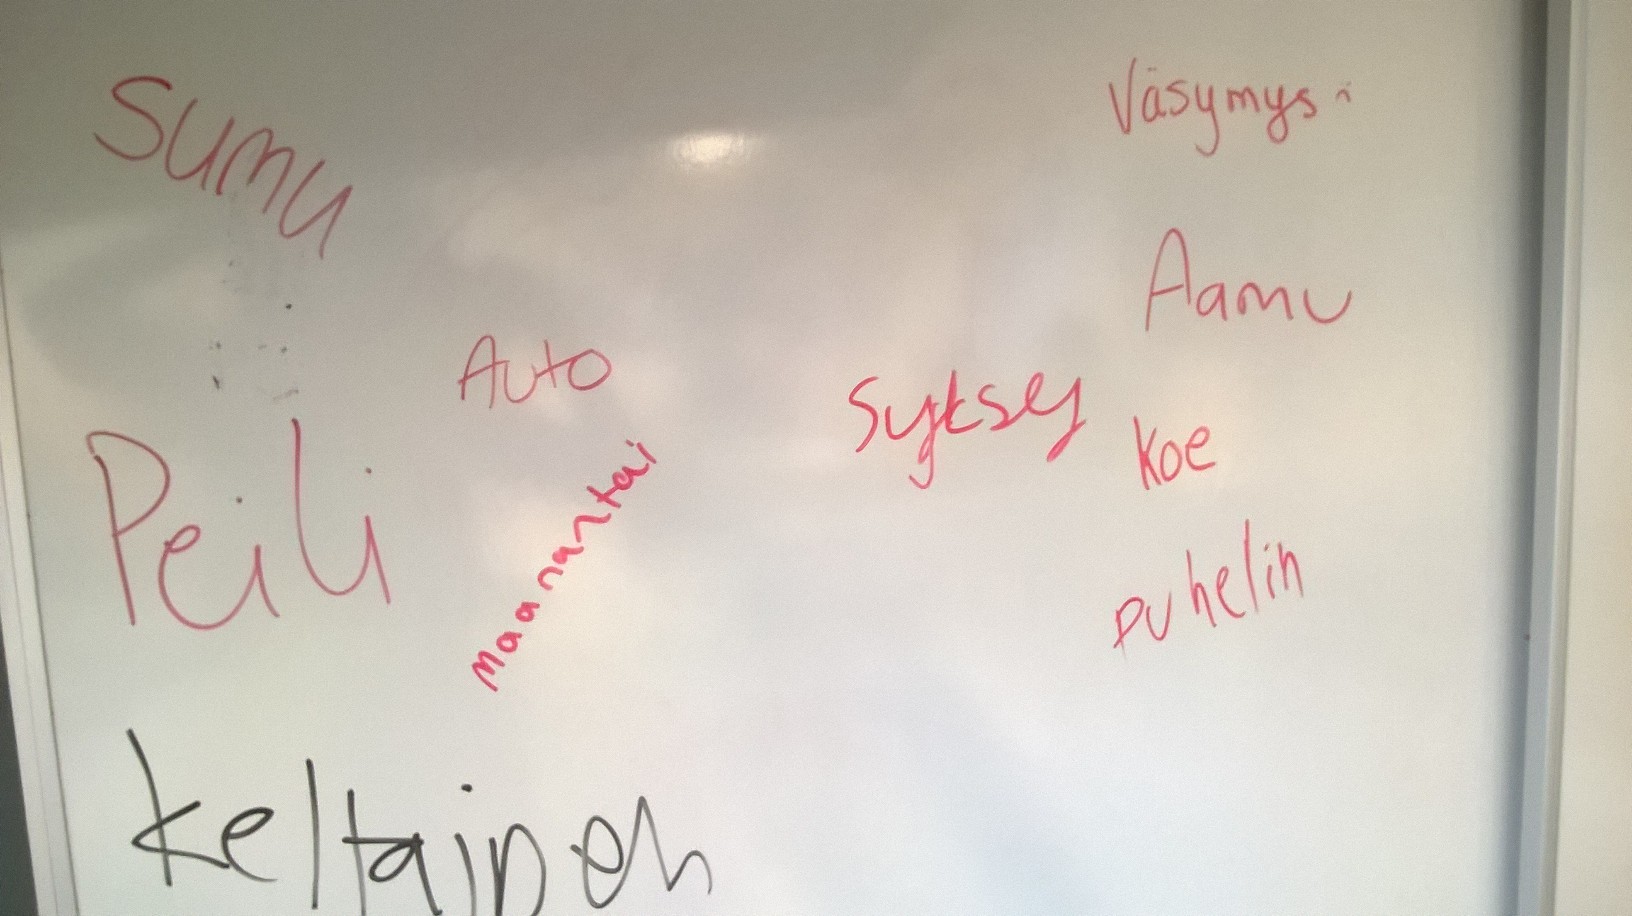 Sumu
Väsymys
Aamu
Auto
Syksy
Peili
Koe
maanantai
puhelin
keltainen